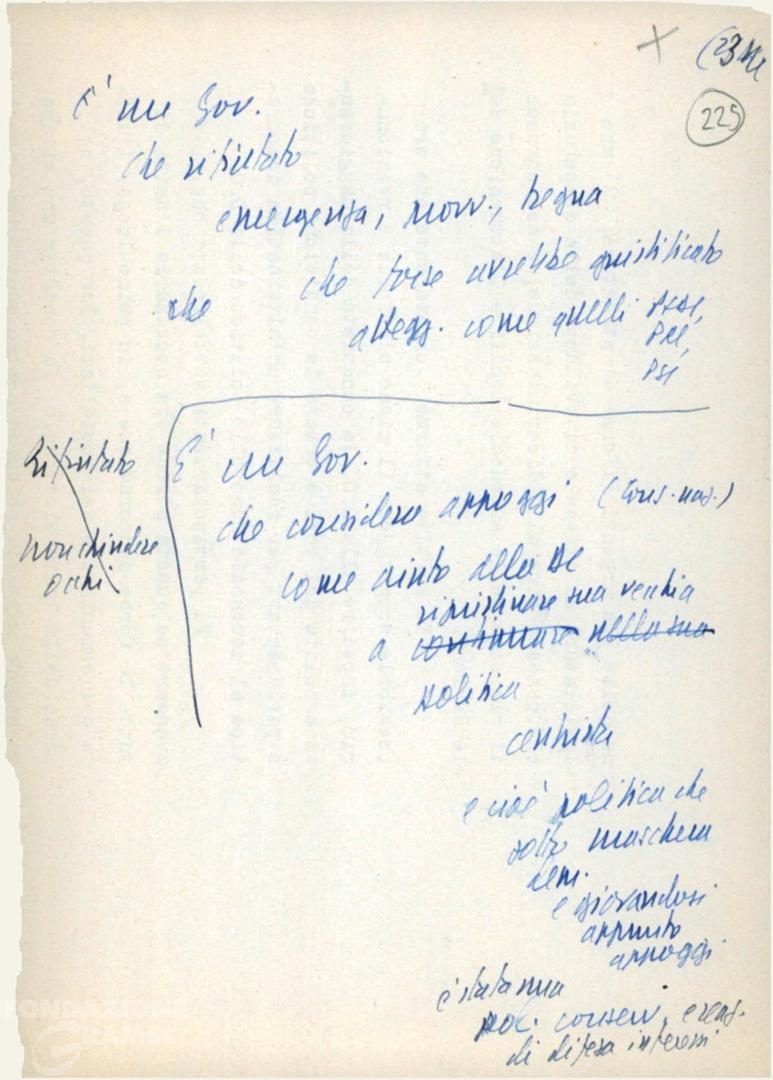 (23
225
È un Gov.
che rifiutato
emergenza, provv., tregua
che forse avrebbe giustificato
che
attegg. come quelli PSDI,
PRI,
PSI
Rifiutato
non chiudere
occhi
È un Gov.
che considera appoggi (Cons. naz.)
come aiuto alla DC
ripristinare sua vecchia
a continuare nella sua
politica
centrista
e cioè politica che
sotto maschera
dem.
e giovandosi
appunto
appoggi
è stata una
pol. conserv. e reaz.
di difesa interessi
FONDAZIONE
GRAMSCI